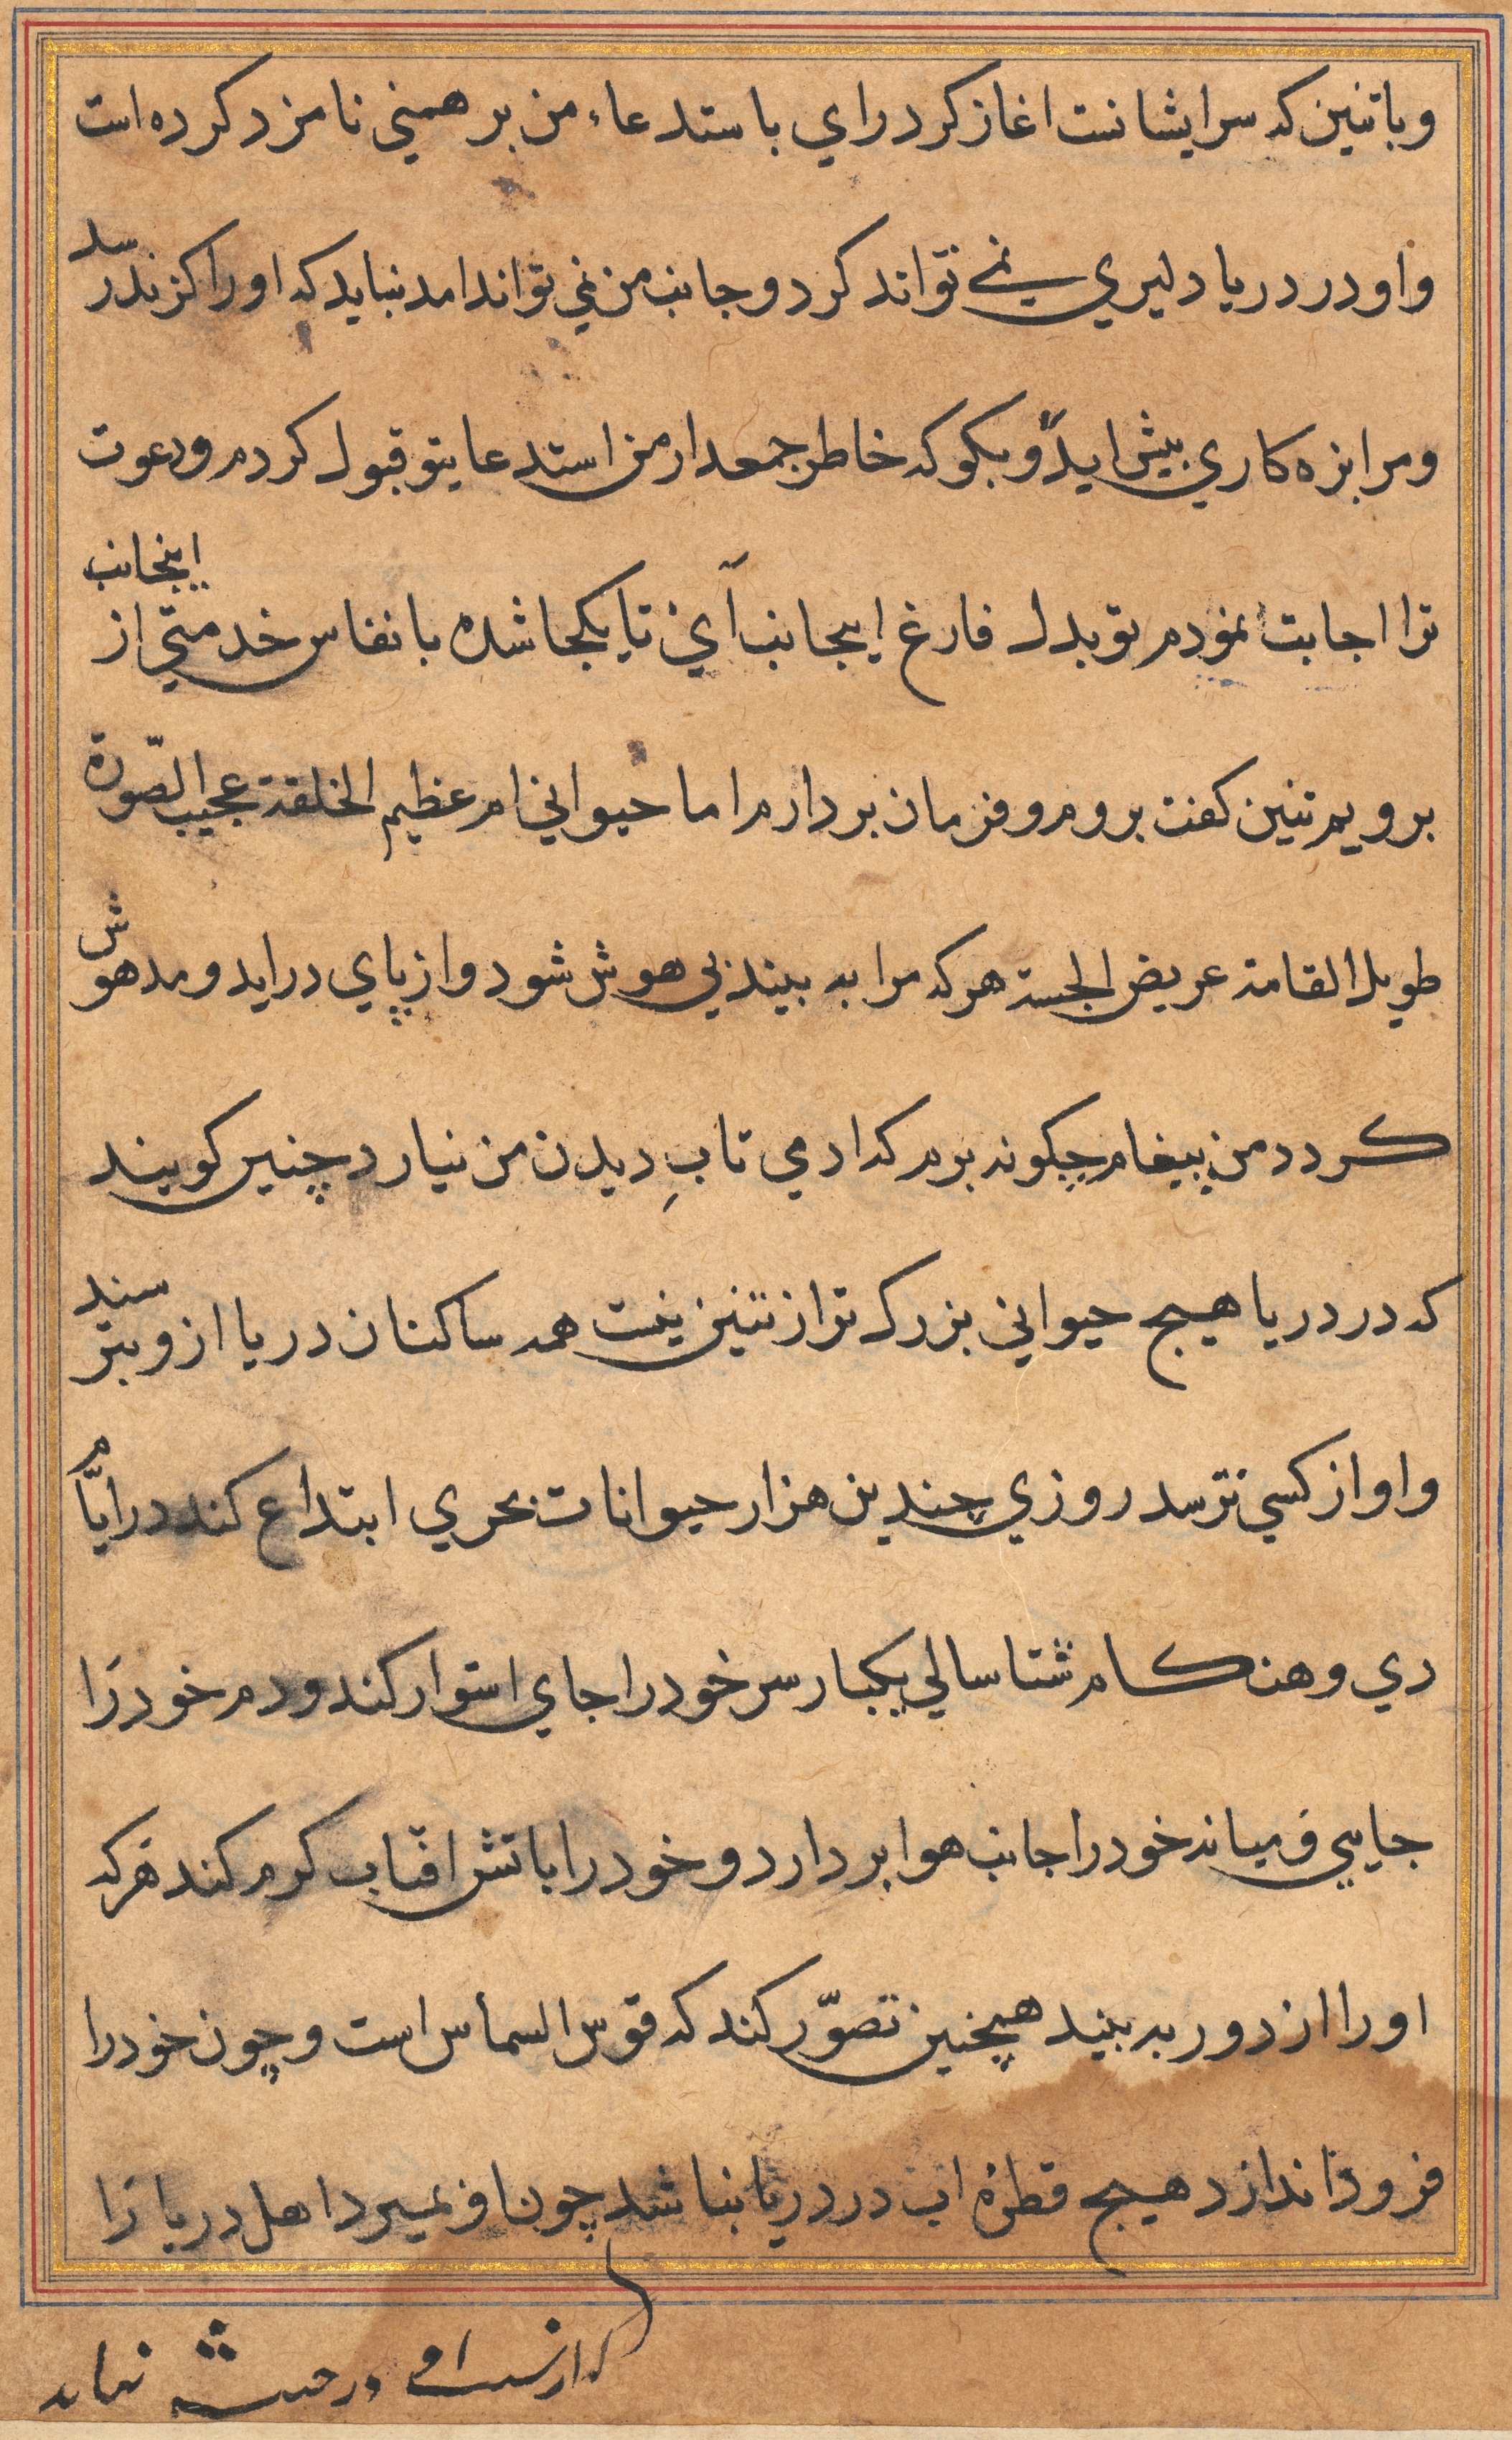 وباتنین که سر ایشانست اغاز کرد رای باستدعاء من برهمنی نامزد کرده است
واو در دریا دلیری نمی تواند کرد و جانب من نمی تواند امد نباید که او را کزند رسد
ومرا بزه کاری پیش اید و بکو که خاطر جمعدار من استدعا یتو قبول کردم ودعوت
ترا اجابت نمودم تو بدل فارغ اینجانب آئ تا یکجا شده بانفاس خدمتی از اینجانب
برویم تنین کفت بروم و فرمان بردارم اما حیوانی ام عظیم الخلقة عجیب الصّورة
طویل القامة عریض الجسته هرکه مرا به بیند بی هوش شود واز پای دراید و مدهوش
کردد من پیغام چکونه برم که ادمی تابِ دیدن من نیارد چنین کویند
که در دریا هیچ حیوانی بزرک تر از تنین نیست همه ساکنان دریا ازو بترسند
واو از کسی نترسد روزی چندین هزار حیوانات بحری ابتداع کند در ایّام
دی و هنکام شتا سالی یکبار سر خود را جای استوار کند ودم خود را
جایی ومیانه خود را جانب هوا بردارد و خود را باتش افتاب کرم کند هرکه
او را از دور به بیند همچنین تصوّر کند که قوس السماس است و چون خود را
فرود اندازد هیچ قطرهٔ اب در دریا بنا شد چون او بمیرد اهل دریا را